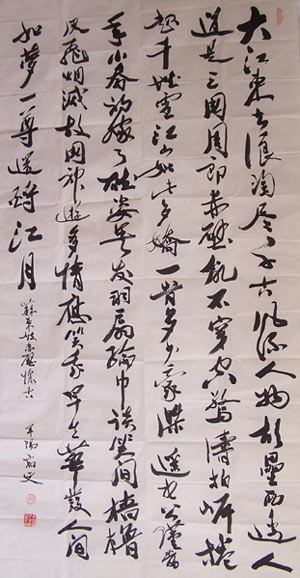 大江東去浪淘尽千古風流人物故壘西邊人
道是三國周郎赤壁乱石穿空驚濤拍岸捲
起千堆雪江山如此多嬌一時多少豪傑遥想公瑾當
年小喬初嫁了雄姿英发羽扇綸巾談笑間檣櫓
灰飛烟滅故國神遊多情應笑我早生華髮人间
如夢一尊還酹江月
蘇東坡赤壁懷古